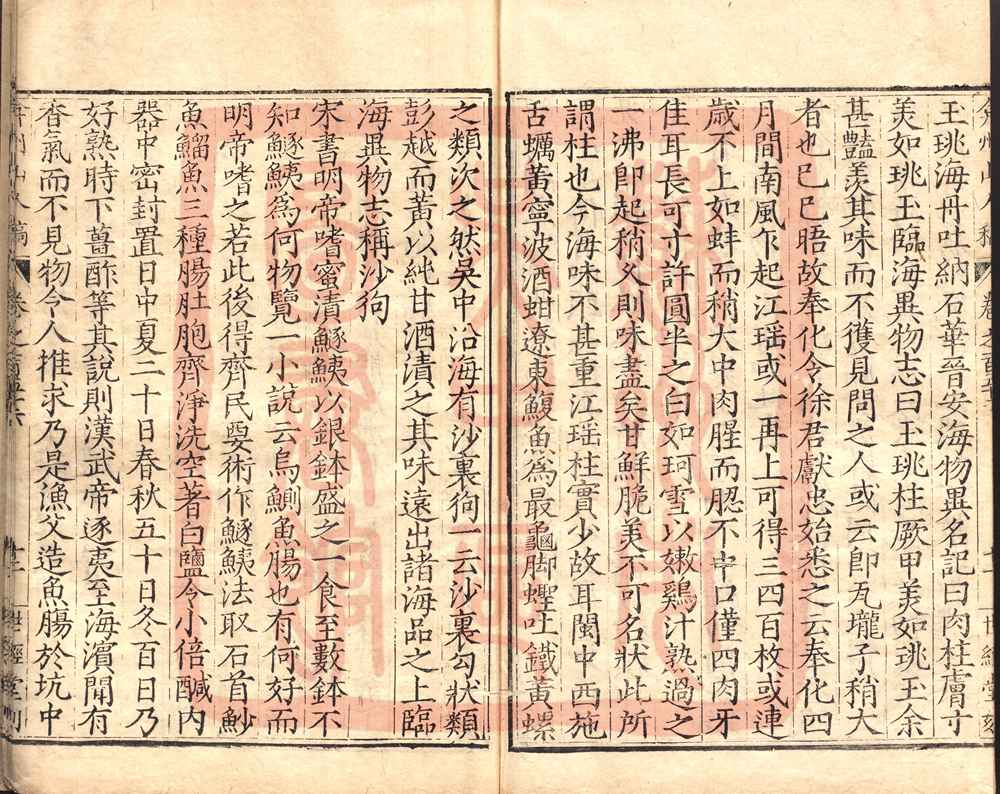 玉珧海丹吐納石華晉安海物異名記曰肉柱膚寸
美如珧玉臨海異物志曰玉珧柱厥甲美如珧玉余
甚豔羨其味而不獲見問之人或云卽瓦壠子稍大
者也巳巳晤故奉化令徐君獻忠始悉之云奉化四
月間南風乍起江瑶或一再上可得三四百枚或連
歲不上如蚌而稍大中肉腥而䏰不中口僅四肉牙
佳耳長可寸許圓半之白如珂雪以嫩鷄汁熟過之
一沸卽起稍久則味盡矣甘鮮脆美不可名狀此所
謂柱也今海味不甚重江瑶柱實少故耳閩中西施
舌蠣黃寧波酒蚶遼東鰒魚為最龜脚蟶吐鐵黃螺
之類次之然吳中沿海有沙裏狗一云沙裏勾狀類
彭越而黃以純甘酒漬之其味遠出諸海品之上臨
海異物志稱沙狗
宋書明帝嗜蜜漬鱁鮧以銀鉢盛之一食至數鉢不
知鱁鮧為何物覽一小說云烏鰂魚腸也有何好而
明帝嗜之若此後得齊民要術作鱁鮧法取石首魦
魚鯔魚三種腸肚胞齊淨洗空著白鹽令小倍醎内
器中密封置日中夏二十日春秋五十日冬百日乃
好熟時下薑酢等其說則漢武帝逐夷至海濵聞有
香氣而不見物令人推求乃是漁父造魚膓於坑中